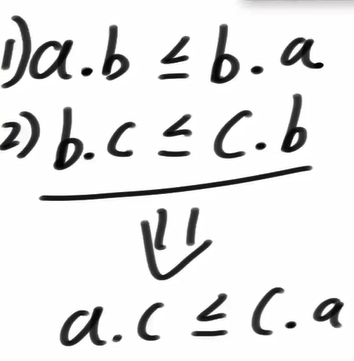 1) a.b ≤ b.a
2) b.c ≤ c.b
⇓
a.c ≤ c.a